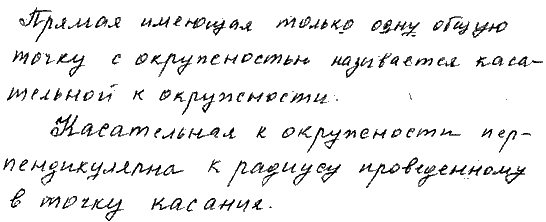 Прямая имеющая только одну общую
точку с окружностью называется каса-
тельной к окружности.
Касательная к окружности пер-
пендикулярна к радиусу проведенному
в точку касания.